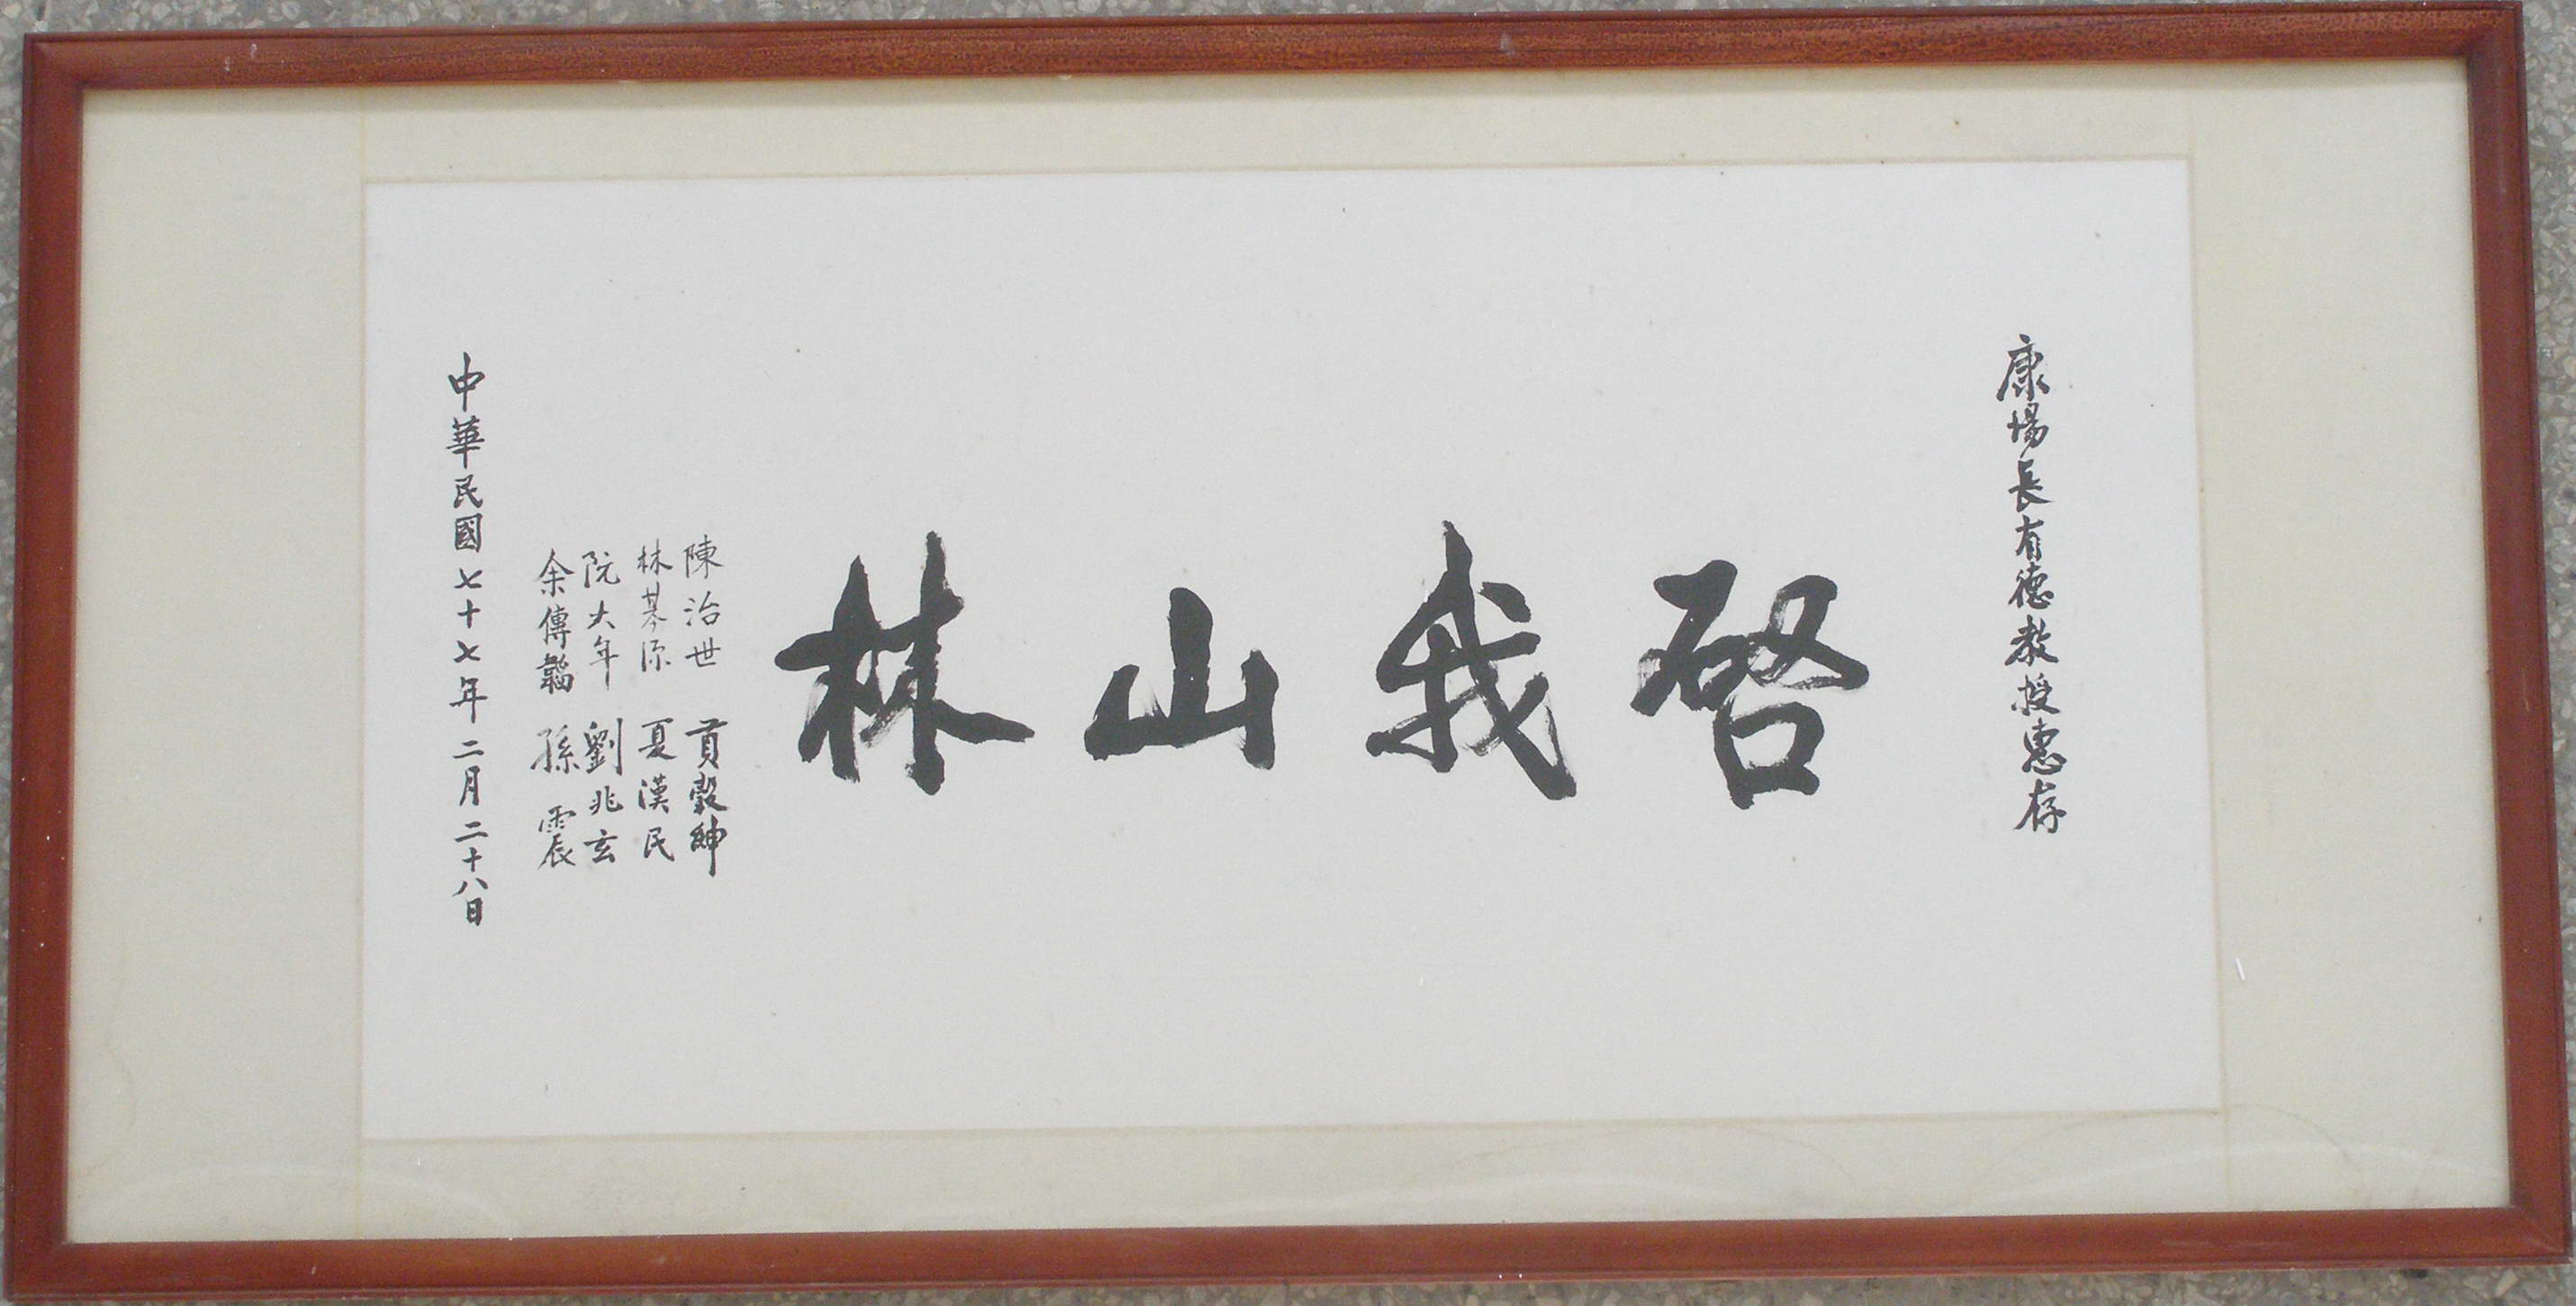 康場長有德教授惠存
啓我山林
陳治世 貢穀紳
林基源 夏漢民
阮大年 劉兆玄
余傳韜 孫震
中華民國七十七年二月二十八日